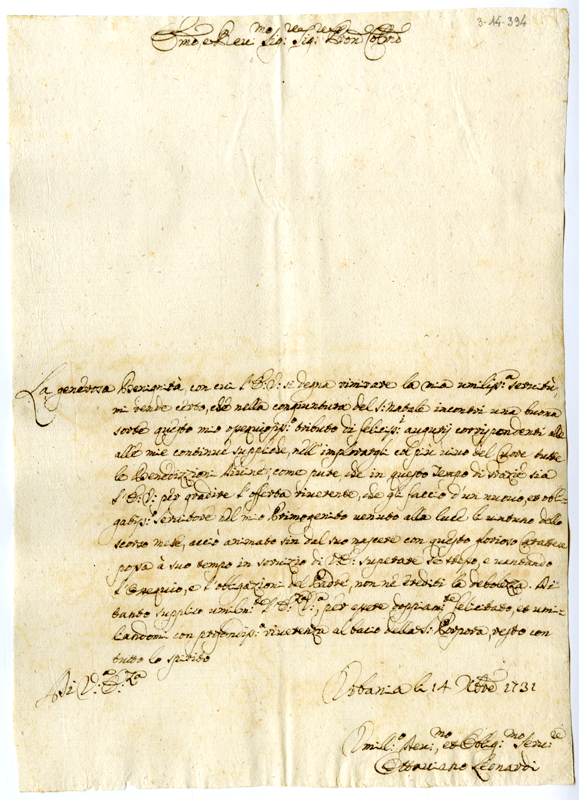 3-14-394
Em̃o e Reu:mo Sig:re Sig:re Pron Colmo
La generosa Benignità, con cui l'E: V: si degna rimirare la mia umiliss:a seruitù,
mi rende certo, che nella congiuntura del S: Natale incontri una buona
sorte questo mio ossequiosiss:o tributo di feliciss:i augurij corrispondenti alle
alle mie continue suppliche, nell'implorargli col più uiuo del Cuore tutte
le Benedizioni Diuine; come pure, che in questo tempo di Grazie sia
l'E: V: per gradire l'offerta riuerente, che gli faccio d'un nuouo, et obli-
gatiss:o Seruitore nel mio Primogenito uenuto alla luce li uentuno dello
scorso mese, acciò animato sin dal suo nascere con questo glorioso carattere
possa à suo tempo in seruizio di V: E: superare se stesso, e uantando
l'ossequio, e l'obligazioni del Padre, non ne erediti la debolezza. Di
tanto supplico umilm:te l'E:za V:a, per essere doppiam:te felicitado, et umi-
liandomi con profondiss:a riuerenza al bacio della S: Porpora, resto con
tutto lo spirito
Di V:a E:za
Vrbania li 14 Xbre 1731
Vmilis:o Deu:mo, et Oblig:mo Seru:re
Ottauiano Leonardi